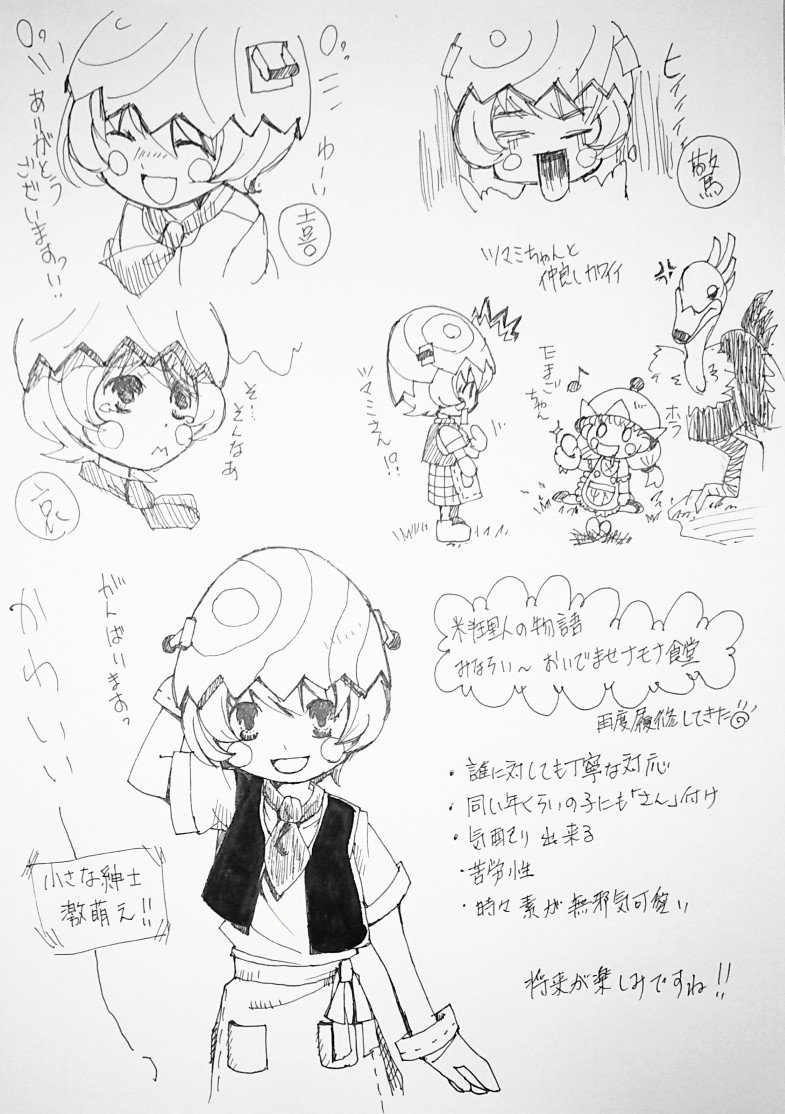 ありがとう
ございますっ!!
わーい
喜
ヒィィィィ
驚
ツマミちゃんと
仲良しカワイイ
そ…
そんなあ
哀
ツマミさん!?
たまご
ちゃん
♪
ホラ
がんばいますっ
かわいい
小さな紳士
激萌え!!
料理人の物語
みならい～おいでませナモナ食堂
再度履修してきた
・誰に対しても丁寧な対応
・同い年くらいの子にも「さん」付け
・気配り出来る
・苦労性
・時々素が無邪気可愛い
将来が楽しみですね!!